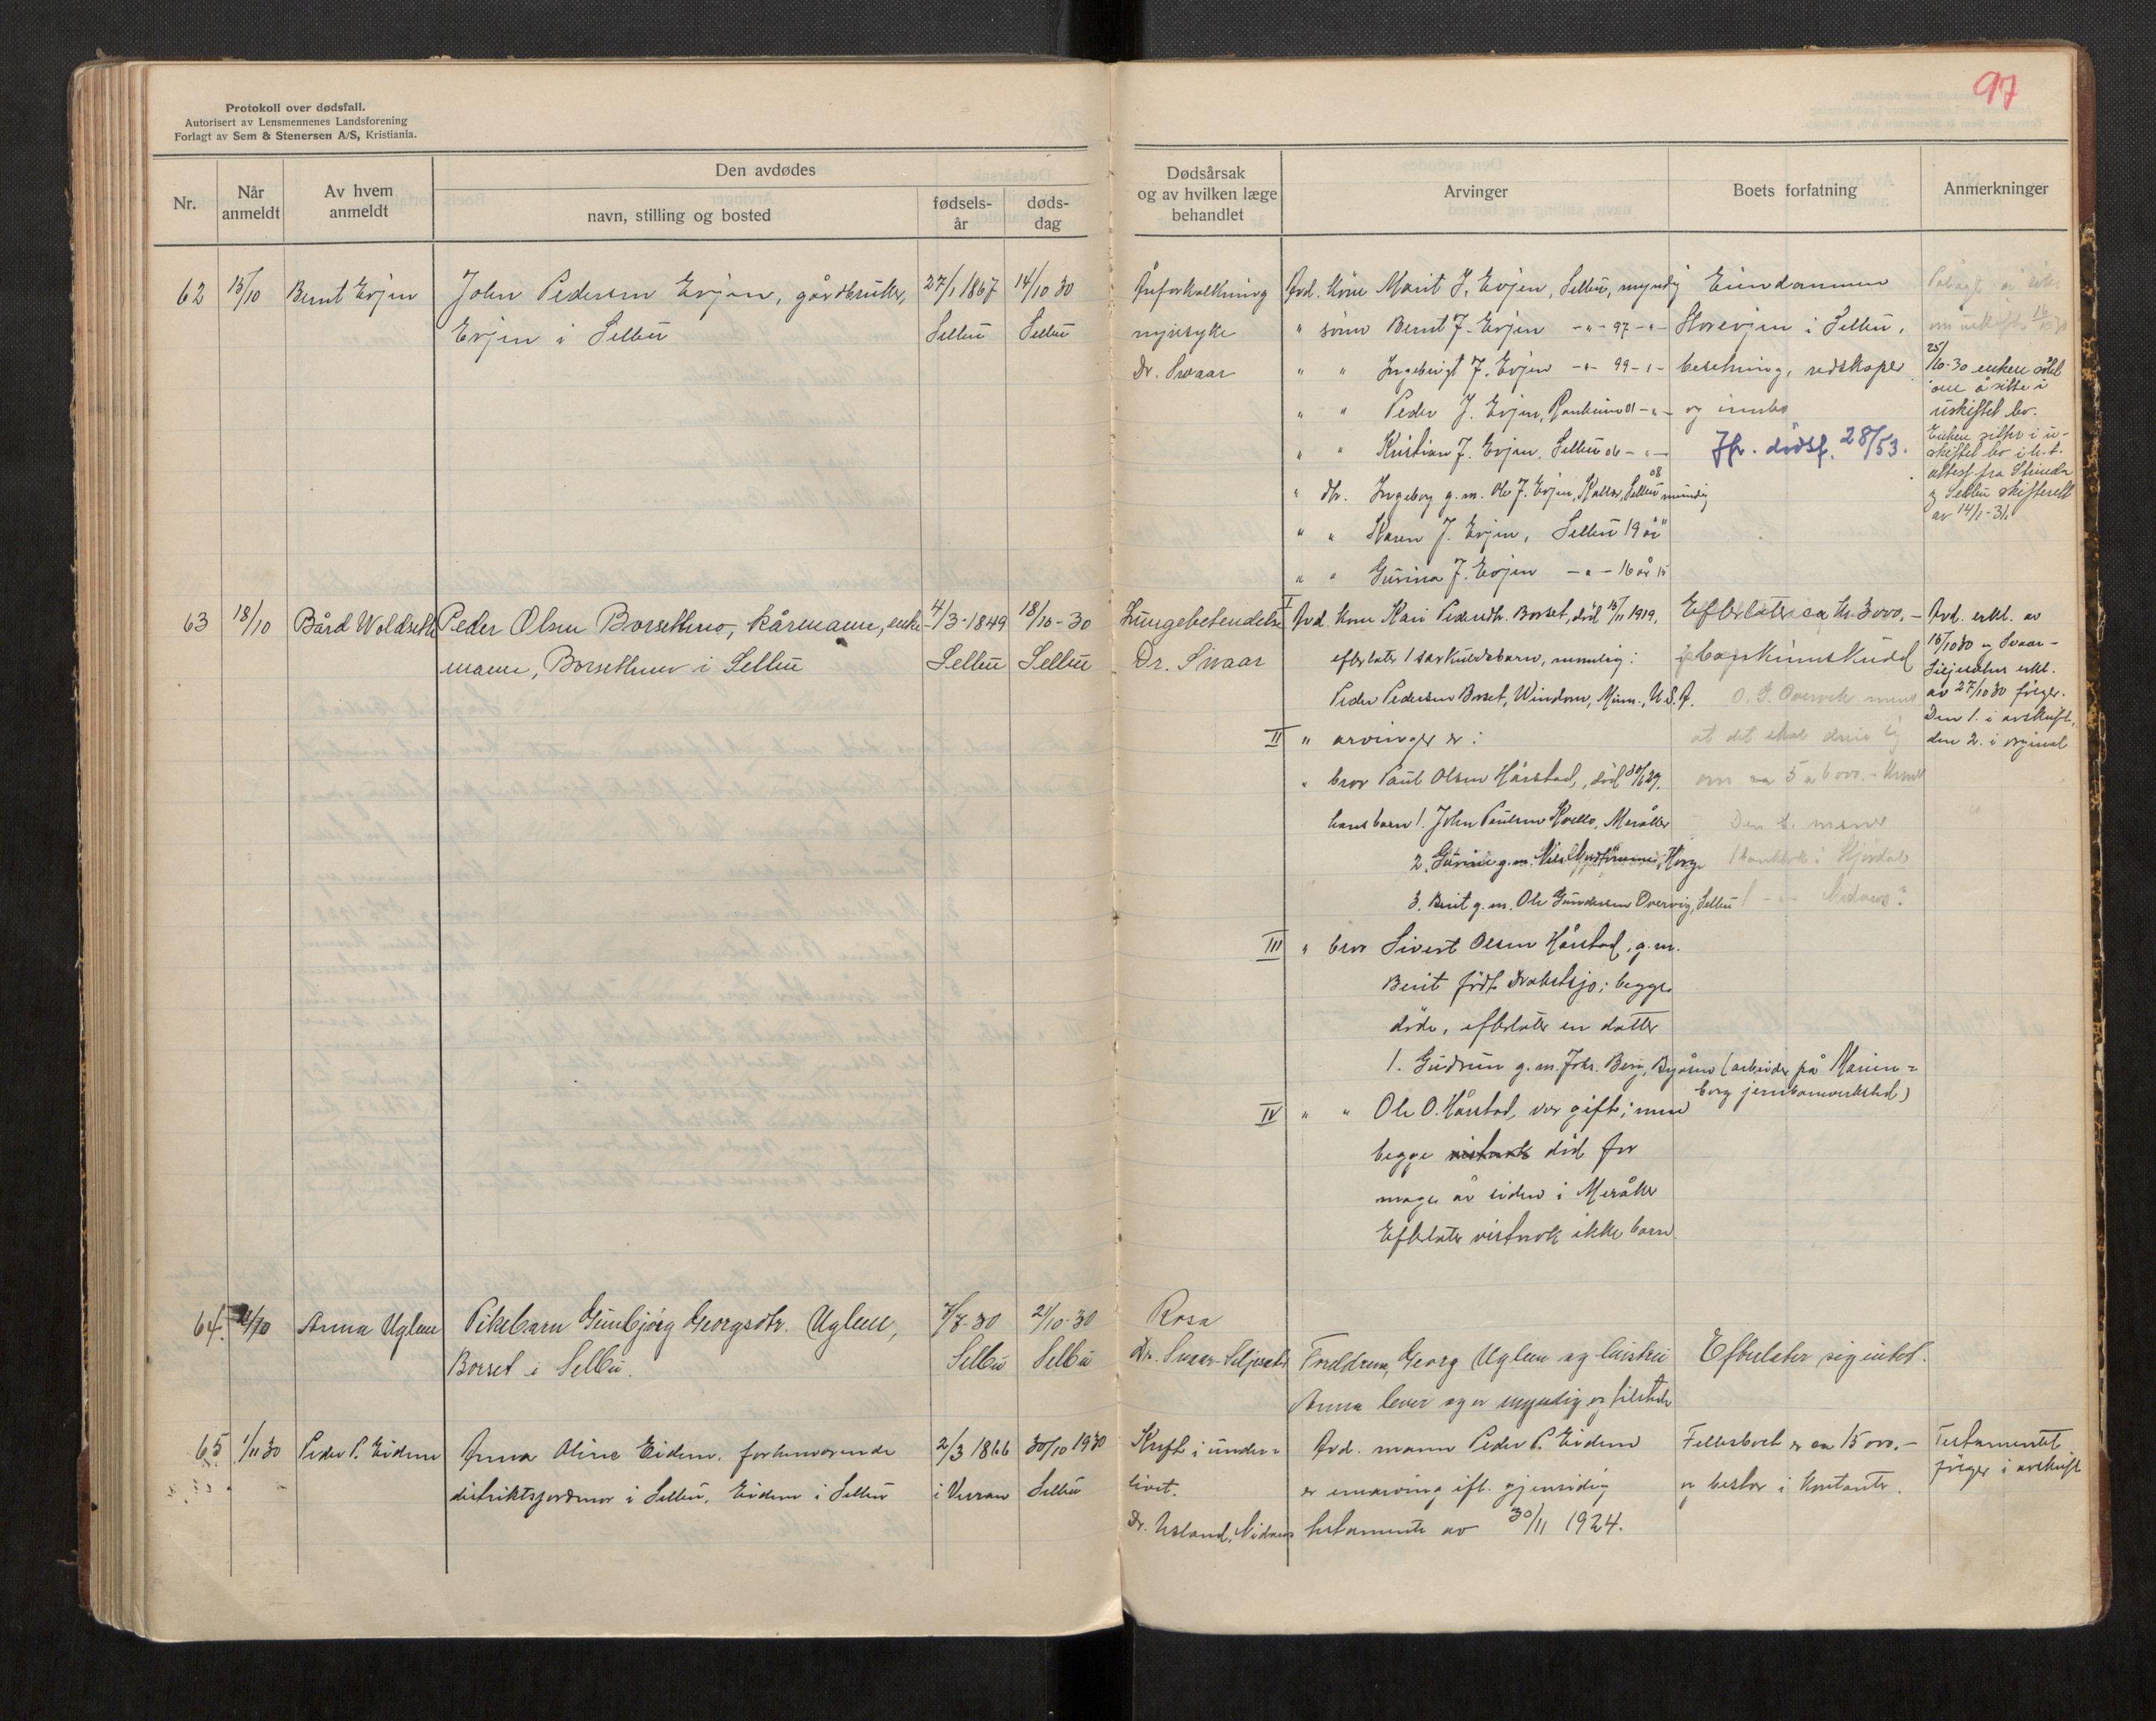 97
Protokoll over dødsfall.
Autorisert av Lensmennenes Landsforening
Forlagt av Sem & Stenersen A/S, Kristiania.
Nr.
Når anmeldt
Av hvem anmeldt
Den avdødes
navn, stilling og bosted
fødsels-år
døds-dag
Dødsårsak og av hvilken læge behandlet
Arvinger
Boets forfatning
Anmerkninger
62 15/10 Bernt Evjen John Pedersen Evjen, gårdbruker, 27/1 1867 14/10 30
Evjen i Selbu Selbu Selbu
Åreforkalkning
nyresyke
Dr. Swaar
Avd. kone Marit J. Evjen, Selbu, myndig
" sønn Bernt J. Evjen -"- 97 -"-
" " Ingebrigt J. Evjen -"- 99 -"-
" " Peder J. Evjen, Ranheim 01 -"-
" " Kristian J. Evjen, Selbu 06 -"-
" dtr. Ingeborg g.m. Ole J. Evjen, Selbu 08 myndig
" " Karen J. Evjen, Selbu 19 år
" " Gurina J. Evjen -"- 16 år
Eiendommen
Storevjen i Selbu,
besetning, redskaper
og innbo
Jfr. dødsf. 28/53.
25/10-30 enken søkt
om å sitte i
uskiftet bo.
Enken sitter i u-
skiftet bo i h.t.
attest fra Strinda
og Selbu skifterett
av 14/1-31.
63 18/10 Bård Woldseth Peder Olsen Borsethmo, kårmann, enke- 4/3-1849 18/10-30
mann, Borsethmo i Selbu Selbu Selbu
Lungebetendelse
Dr. Swaar
I Avd. kone Kari Pedersdtr. Borset, død 15/11 1919,
efterlater 1 særkullsbarn, nemlig:
Peder Pedersen Borset, Windom, Minn., U.S.A.
II " arvinger er:
" bror Paul Olsen Hårstad, død 30/6 29.
hans barn 1. John Paulsen Kvello, Meråker
2. Gurine g.m. Nils
3. Berit g.m. Ole Gundersen Overvig, Selbu
III " bror Sivert Olsen Hårstad, g.m.
Berit født Drakstsjø; begge
døde, efterlater en datter
1. Gudrun g.m. Johs. Berg, Byåsen (arbeider på Marien-
borg jernbaneverksted)
IV " " Ole O. Hårstad, var gift; men
begge vistnok død for
mage år siden i Meråker
Efterlater vistnok ikke barn
Efterlater ca kr. 3000,-
O. G. Overvik mener
at det skal dreie sig
om ca 5 a 6000.- kroner
Avd. erkl. av
16/10 30 og Swaar-
Siljesæters erkl.
av 27/10 30 følger.
Den 1. i avskrift,
den 2. i original
64. 21/10 Anna Uglem Pikebarn Gunbjørg Georgsdtr. Uglem, 7/7-30 21/10-30
Borset i Selbu. Selbu Selbu
Rosa
Dr. Swaar-Siljesæter
Foreldrene, Georg Uglem og hustru
Anna lever og er myndig og tilstede
Efterlater sig intet.
65 1/11 30 Peder P. Eidem Anna Oline Eidem, forhenværende 2/3 1866 30/10 1930
distriktsjordmor i Selbu, Eidem i Selbu i Verran Selbu
Kreft i under-
livet.
Dr. Usland, Nidaros
Avd. mann Peder P. Eidem
er enearving ifl. gjensidig
testamente av 30/11 1924.
Fellesboet er ca 15 000.-
og består i kontanter.
Testamentet
følger i avskrift